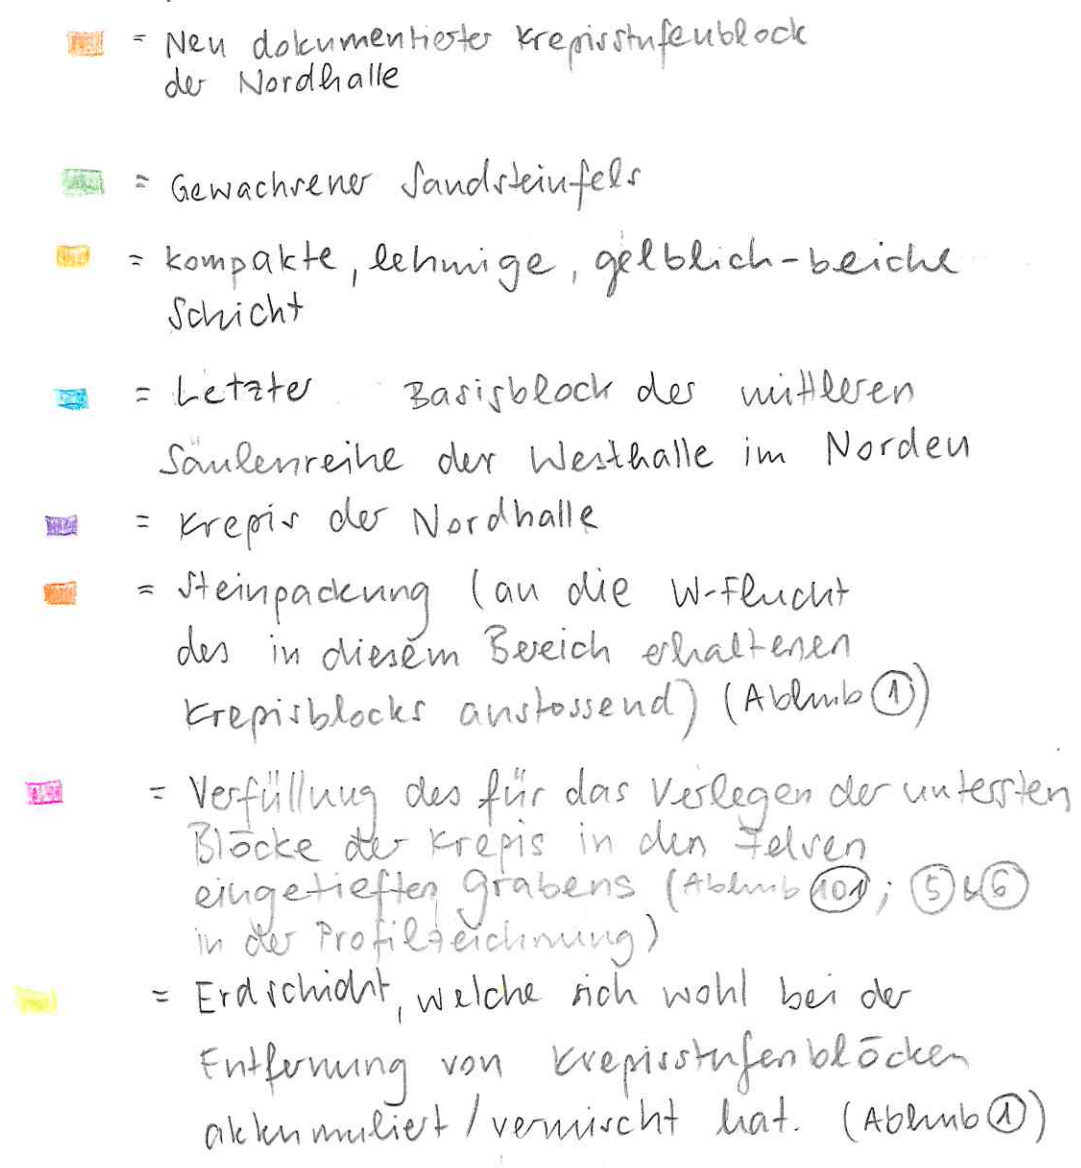 = Neu dokumentierter Krepisstufenblock
der Nordhalle
= Gewachsener Sandsteinfels
= kompakte, lehmige, gelblich-beiche
Schicht
= Letzter Basisblock der mittleren
Säulenreihe der Westhalle im Norden
= Krepis der Nordhalle
= Steinpackung (an die W-Flucht
des in diesem Bereich erhaltenen
Krepisblocks anstossend) (Abhub ①)
= Verfüllung des für das Verlegen der untersten
Blöcke der Krepis in den Felsen
eingetieften Grabens (Abhub 101; ⑤ & ⑥
in der Profilzeichnung)
= Erdschicht, welche sich wohl bei der
Entfernung von Krepisstufenblöcken
akkumuliert / vermischt hat. (Abhub ①)